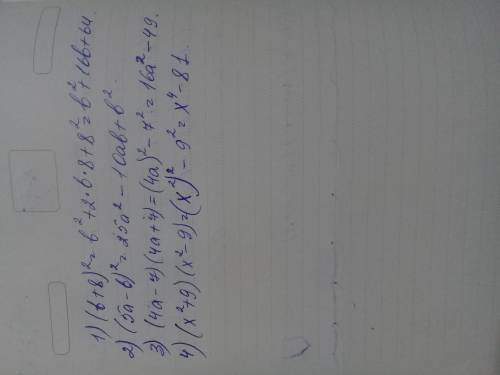 1) (b+8)²=b²+2·b·8+8²=b²+16b+64.
2) (5a-b)²=25a²-10ab+b².
3) (4a-7)(4a+7)=(4a)²-7²=16a²-49.
4) (x²+9)(x²-9)=(x²)²-9²=x⁴-81.